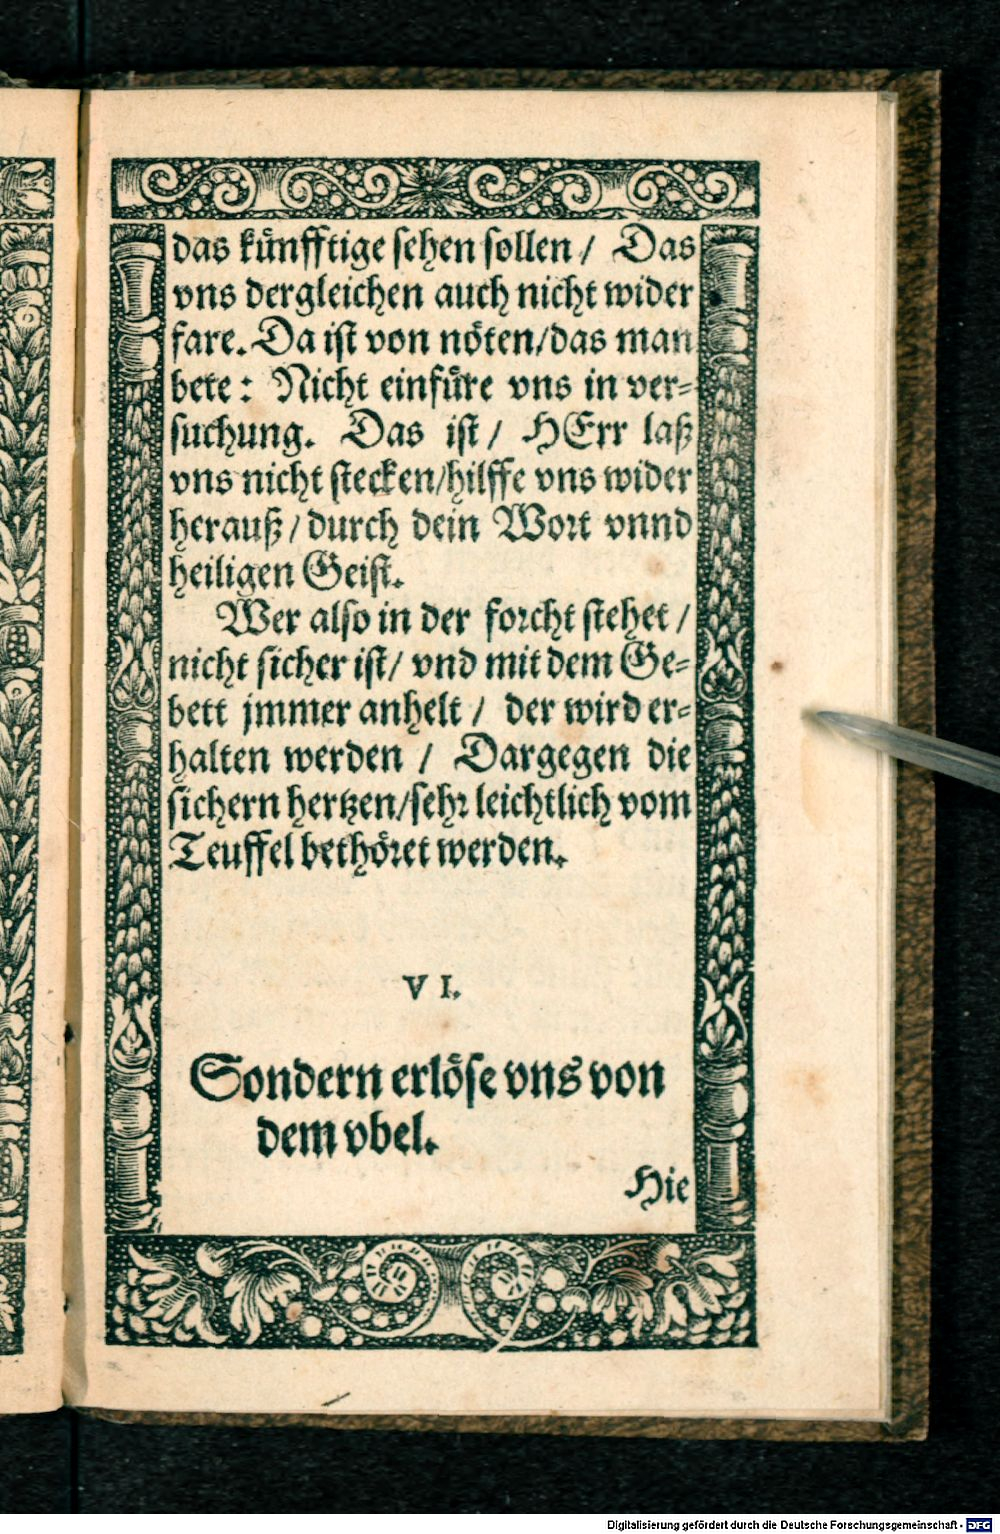 das künfftige sehen sollen / Das
vns dergleichen auch nicht wider
fare. Da ist von nöten/das man
bete: Nicht einfüre vns in ver-
suchung. Das ist / HErr laß
vns nicht stecken/hilffe vns wider
herauß / durch dein Wort vnnd
heiligen Geist.
Wer also in der forcht stehet /
nicht sicher ist/ vnd mit dem Ge-
bett jmmer anhelt / der wird er-
halten werden / Dargegen die
sichern hertzen/sehr leichtlich vom
Teuffel bethöret werden.
VI.
Sondern erlöse vns von
dem vbel.
Hie
Digitalisierung gefördert durch die Deutsche Forschungsgemeinschaft - DFG